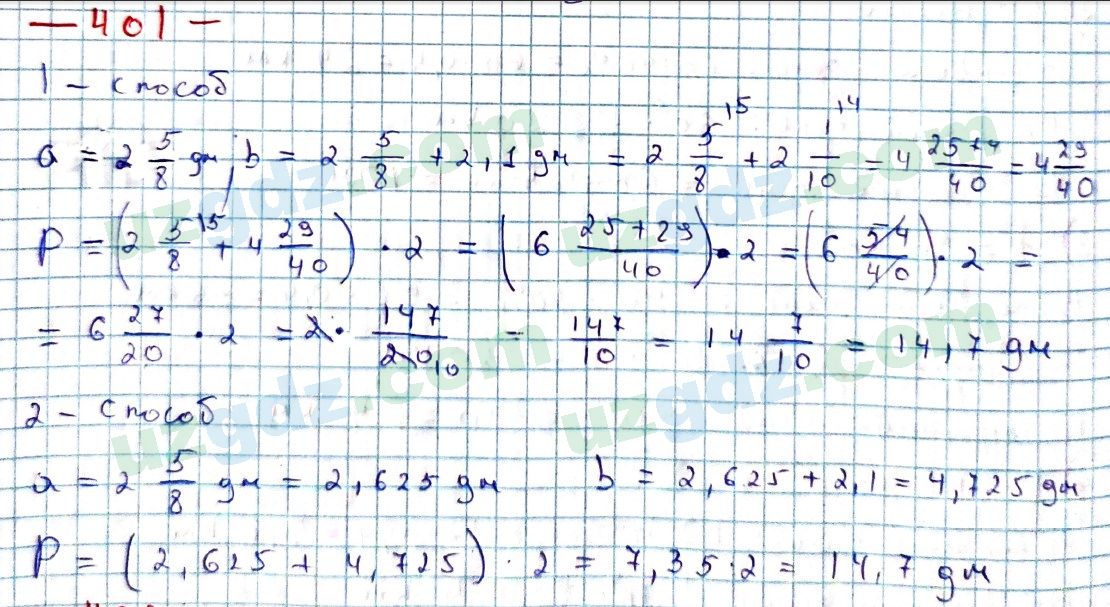 — 401 —
1 - способ
a = 2 5/8 дм, b = 2 5/8 + 2,1 дм = 2 5/8 ⁽⁵ + 2 1/10 ⁽⁴ = 4 (25+4)/40 = 4 29/40
P = (2 5/8 ⁽⁵ + 4 29/40) · 2 = (6 (25+29)/40) · 2 = (6 54/40) · 2 =
= 6 27/20 · 2 = 2 · 147/20 10 = 147/10 = 14 7/10 = 14,7 дм
2 - способ
a = 2 5/8 дм = 2,625 дм b = 2,625 + 2,1 = 4,725 дм
P = (2,625 + 4,725) · 2 = 7,35·2 = 14,7 дм
uzgdz.com
uzgdz.com
uzgdz.com
uzgdz.com